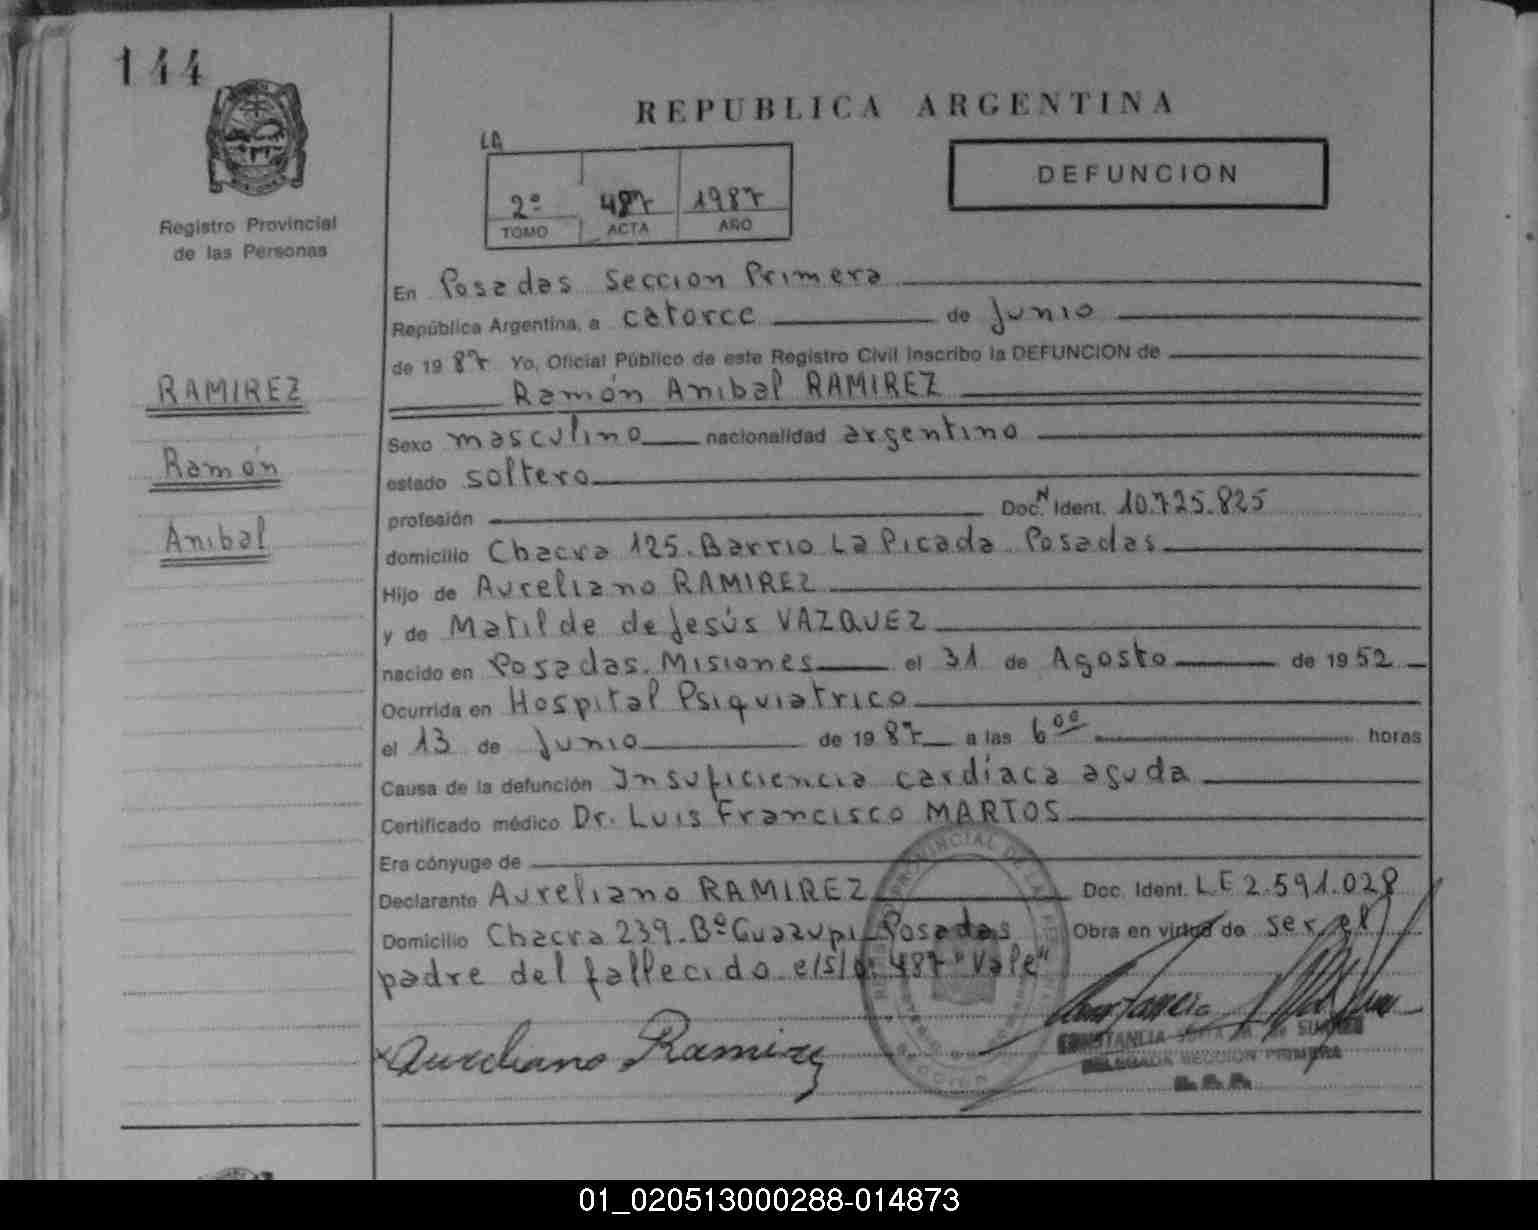 144
REPUBLICA ARGENTINA
LA
2º 487 1987
TOMO ACTA AÑO
DEFUNCION
Registro Provincial
de las Personas
RAMIREZ
Ramón
Anibal
En Posadas Seccion Primera
República Argentina, a catorce de Junio
de 1987 Yo, Oficial Público de este Registro Civil inscribo la DEFUNCION de
Ramón Anibal RAMIREZ
Sexo masculino nacionalidad argentino
estado soltero
profesión Doc. N Ident. 10.725.825
domicilio Chacra 125. Barrio La Picada. Posadas
Hijo de Aureliano RAMIREZ
y de Matilde de Jesús VAZQUEZ
nacido en Posadas. Misiones el 31 de Agosto de 1952
Ocurrida en Hospital Psiquiatrico
el 13 de Junio de 1987 a las 6 00 horas
Causa de la defunción Insuficiencia cardíaca aguda
Certificado médico Dr. Luis Francisco MARTOS
Era cónyuge de
Declarante Aureliano RAMIREZ Doc. Ident. L.E 2.591.028
Domicilio Chacra 239. Bº Guazupi Posadas Obra en virtud de ser el
padre del fallecido e/s/o: 487 "Vale"
Aureliano Ramirez
CONSTANCIA
SECCION PRIMERA
01_020513000288-014873